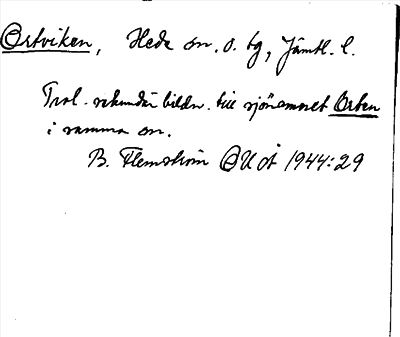 Ortviken, Hede sn. o. tg, Jämtl. l.
Trol. sekundär bildn. till sjönamnet Orten
i samma sn.
B. Flemström OUÅ 1944:29